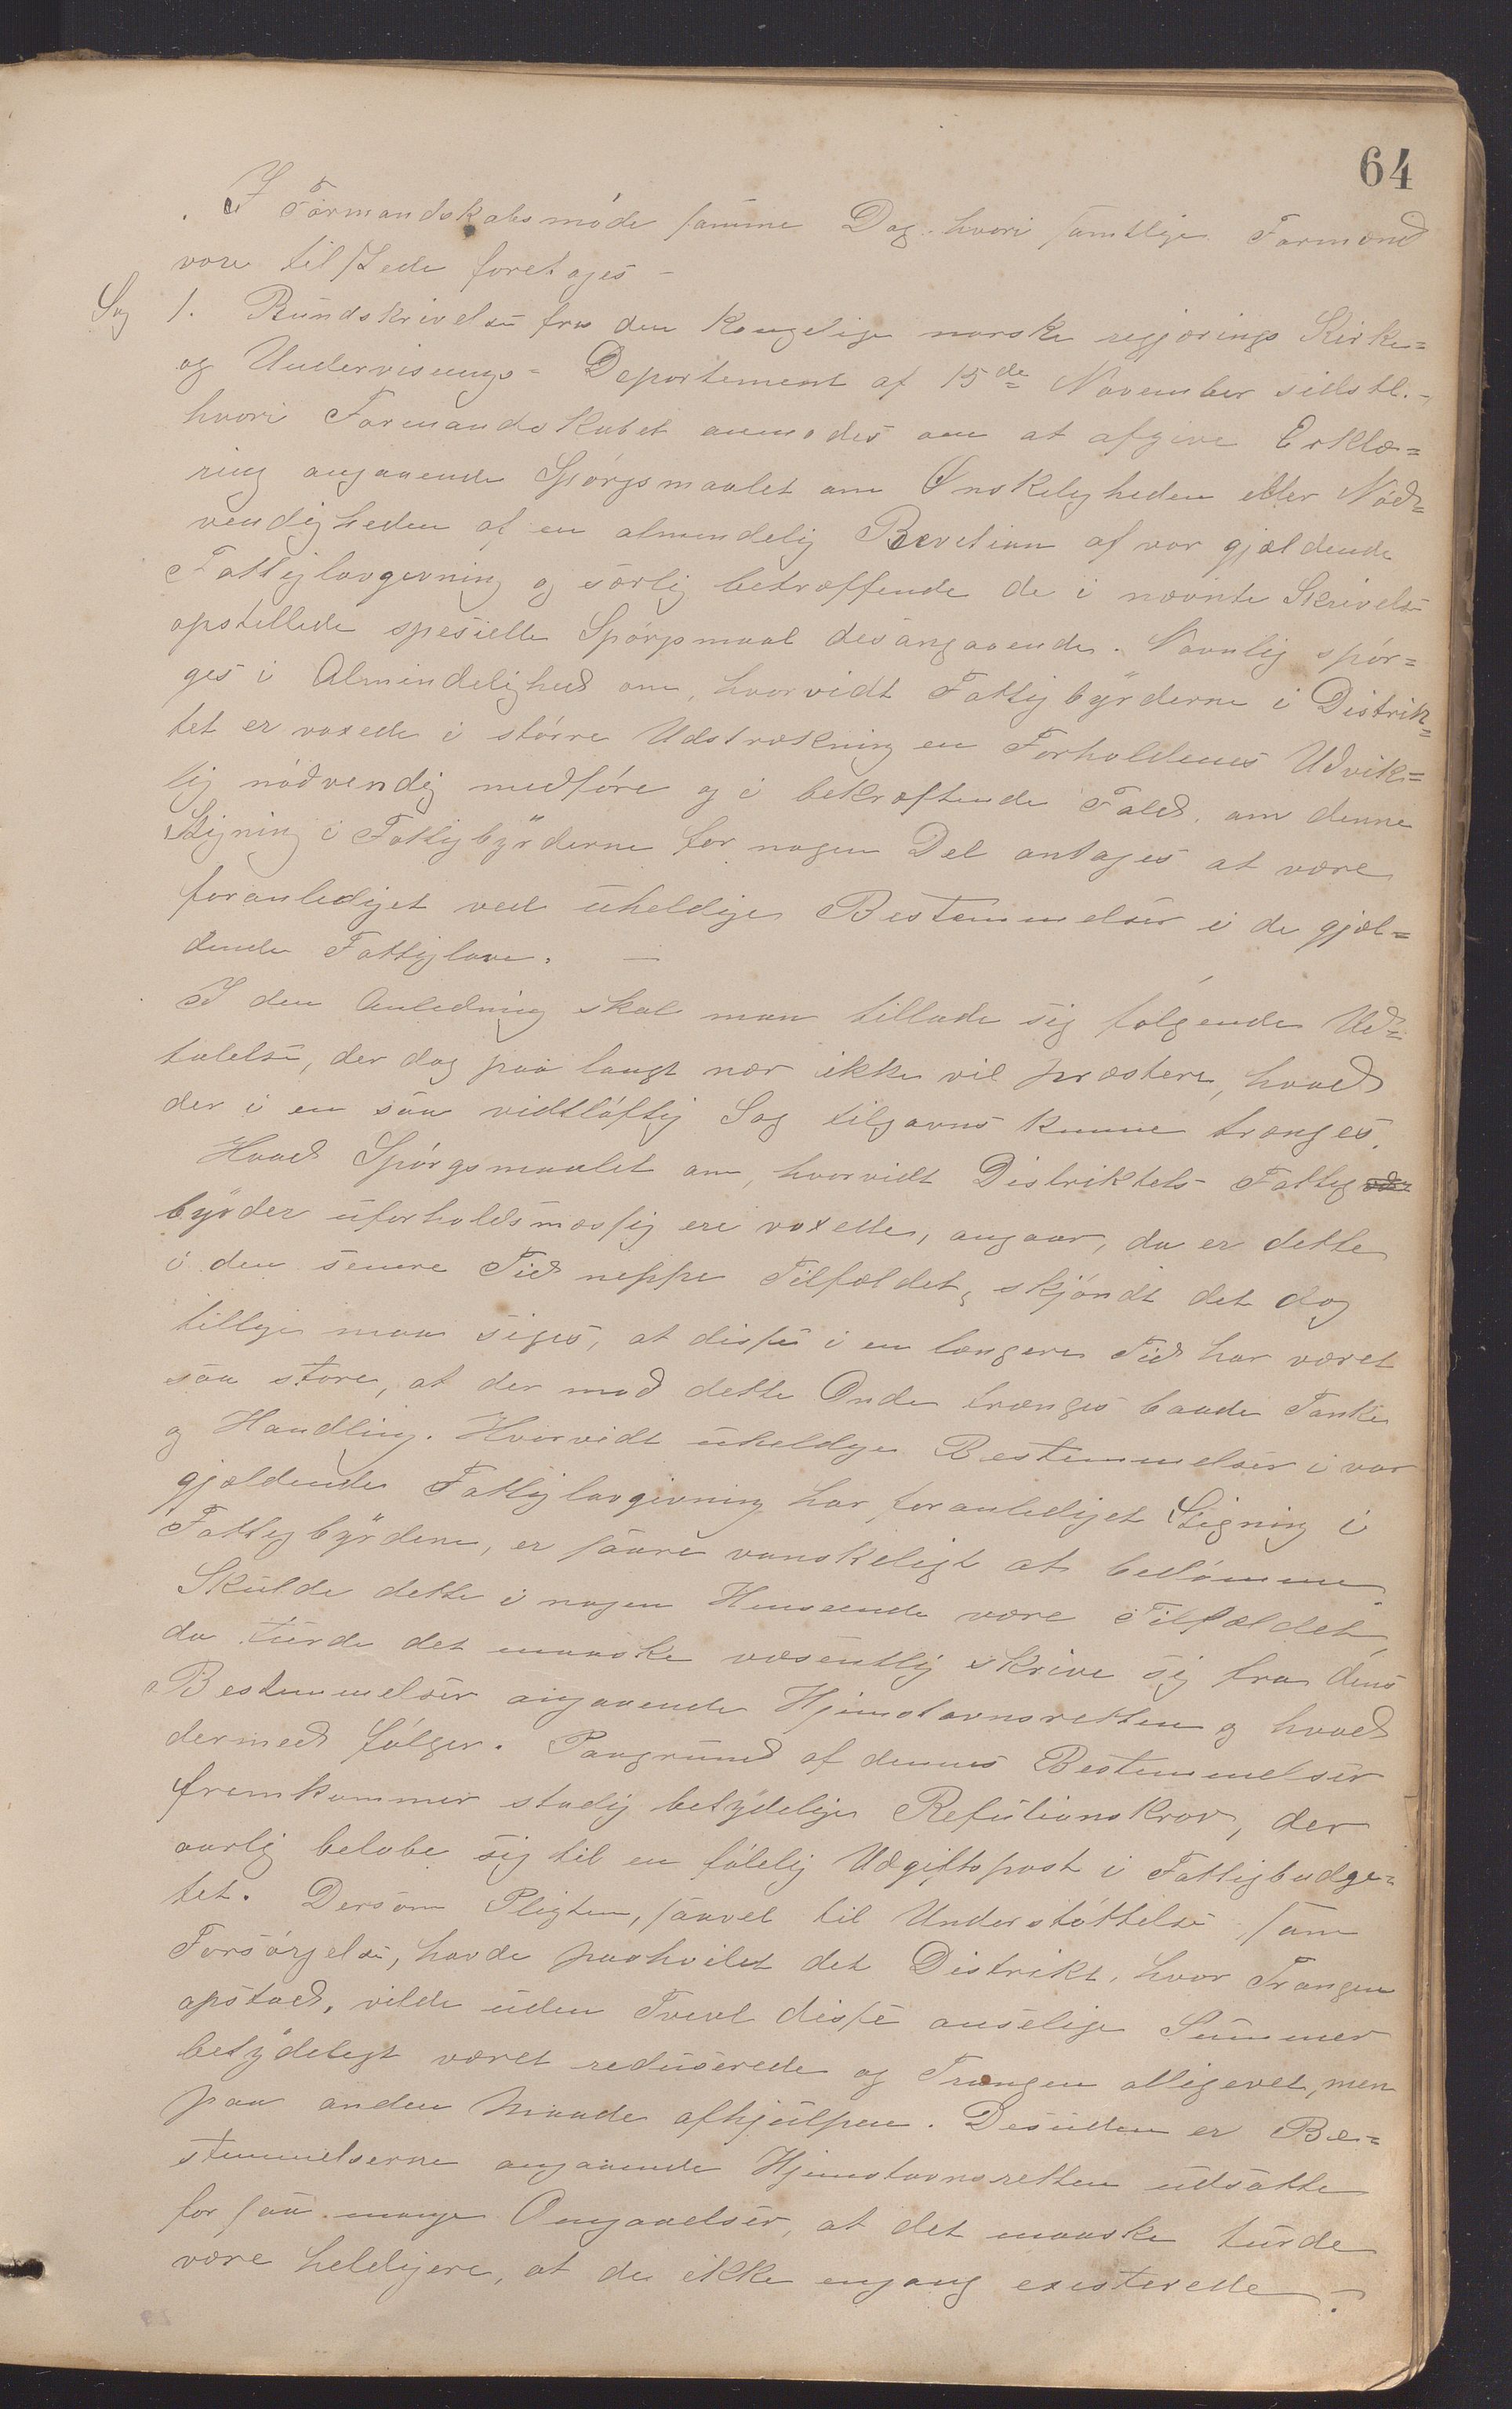 64
I Formandskabsmöde samme Dag hvori samtlige Formænd
vare tilstede foretages –
Sag 1. Rundskrivelse fra den Kongelige norske regjerings Kirke=
og Undervisnings= Departement af 15de November sidstl. –
hvori Formandskabet anmodes om at afgive Erklæ=
ring angaaende Spörgsmaalet om Ønskeligheden eller Nöd=
vendigheden af en almindelig Revetion af vor gjældende
Fattiglovgivning og særlig betræffende de i nævnte Skrivelse
opstillede spesielle Spörgsmaal desangaaende. Navnlig spör=
ges i Almindelighed om, hvorvidt Fattigbyrderne i Distrik=
tet er voxede i större Udstrækning en Forholdenes Udvik=
lig nödvendig medföre og i bekræftende Fald, om denne
Stigning i Fattigbyrderne for nogen Del antages at være
foranlediget ved uheldige Bestemmelser i de gjæl=
dende Fattiglove. –
I den Anledning skal man tillade sig følgende Ud=
talelse, der dog paa langt nær ikke vil præstere, hvad
der i en saa vidtlöftig Sag tilgavns kunne trænges.
Hvad Spörgsmaalet om, hvorvidt Distriktets Fattig
byrder uforholdsmæssig ere voxede, angaar, da er dette
i den senere Tid neppe Tilfældet, skjöndt det dog
tillige maa siges, at disse i en længere Tid har været
saa store, at der mod dette Onde trænges baade Tanke
og Handling. Hvorvidt uheldige Bestemmelser i vor
gjældende Fattiglovgivning har foranlediget Stigning i
Fattigbyrderne, er saare vanskeligt at bedömme.
Skulde dette i nogen Henseende være Tilfældet,
da turde det maaske væsentlig skrive sig fra dens
Bestemmelser angaaende Hjemstavnsretten og hvad
dermed fölger. Paagrund af dennes Bestemmelser
fremkommer stadig betydelige Refutionskrav, der
aarlig beløbe sig til en fölelig Udgiftspost i Fattigbudge=
tet. Dersom Pligten, saavel til Understöttelse som
Forsörgelse, havde paahvilet det Distrikt, hvor Trangen
opstaed, vilde uden Tvevl disse anselige Summer
betydeligt været reduserede og Trangen alligevel, men
paa anden Maade afhjulpen. Desuden er Be=
stemmelserne angaaende Hjemstavnsretten udsatte
for saa mange Omgaaelser, at det maaske turde
være heldigere, at de ikke engang existerede.